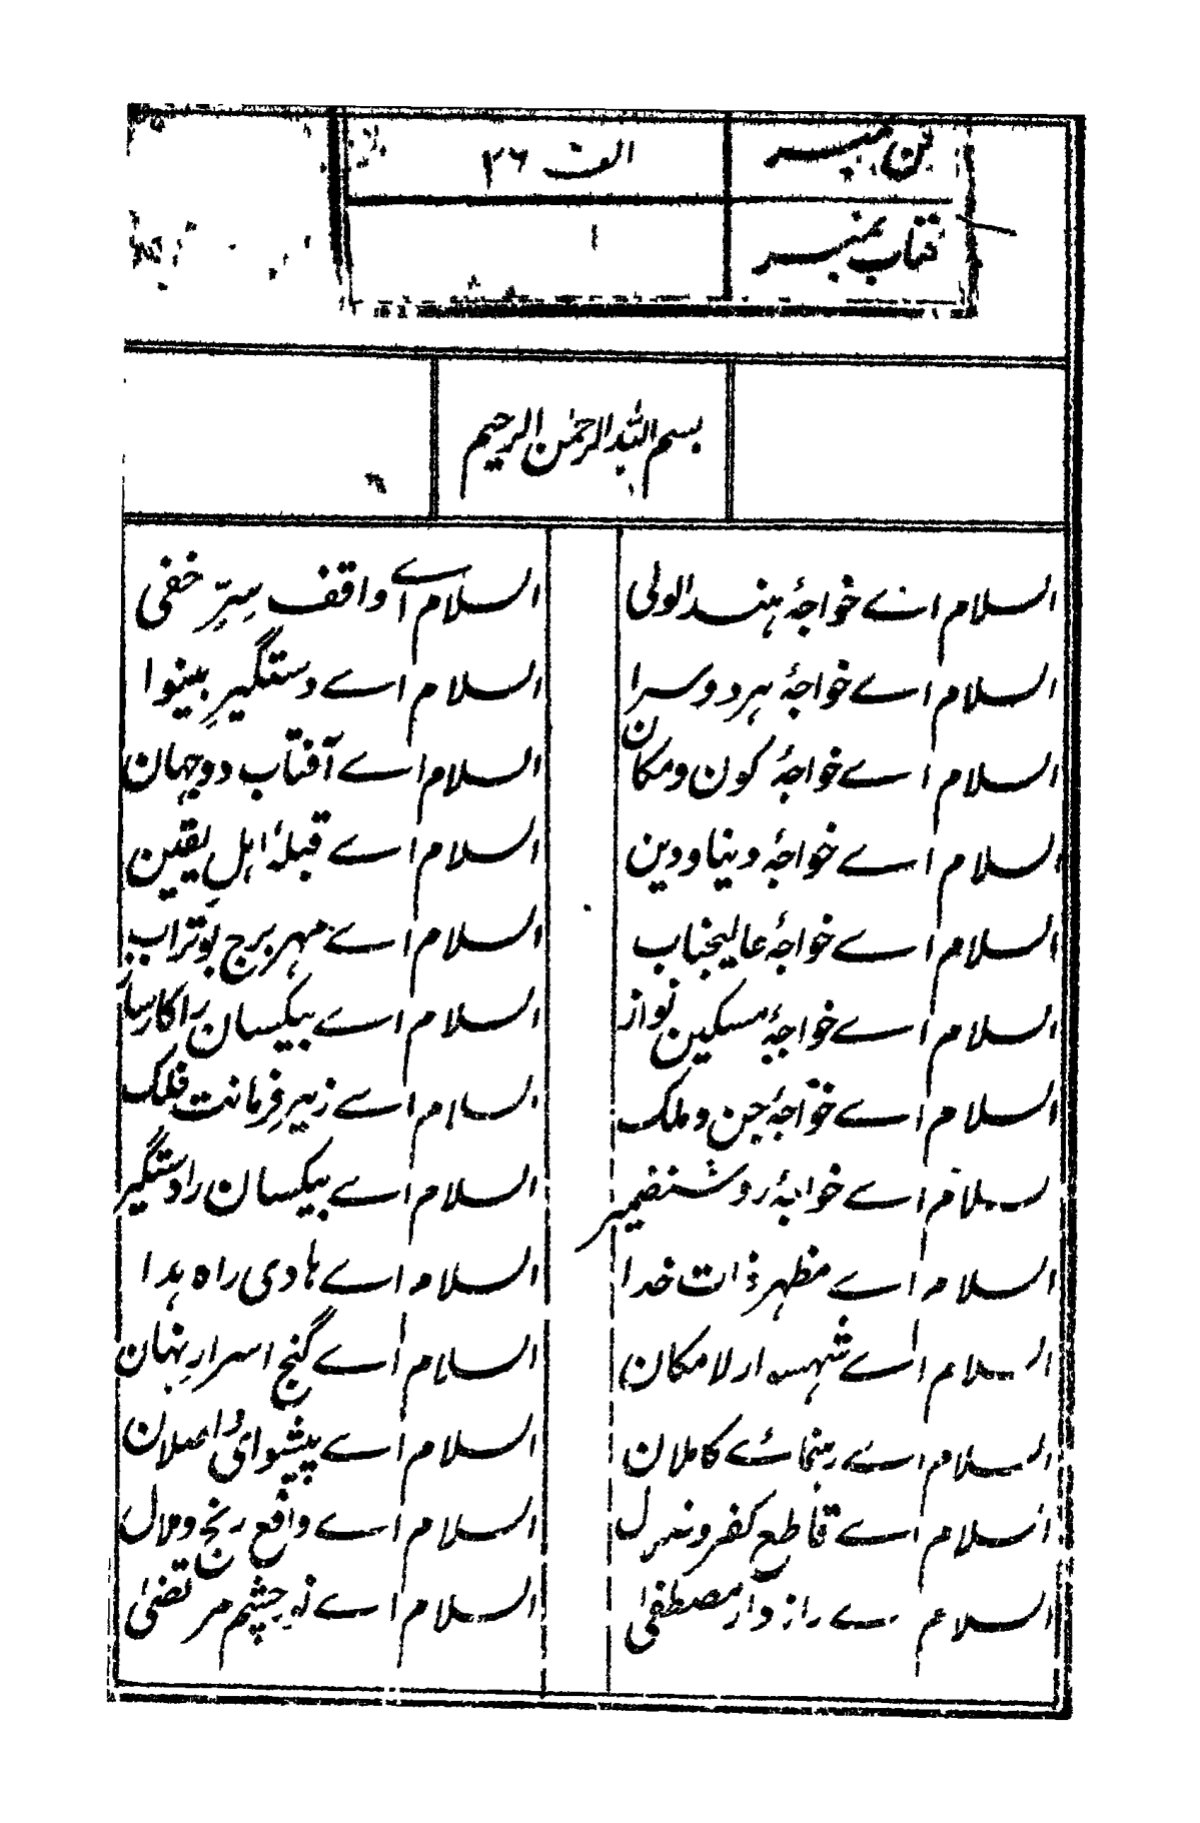 فن نمبر الف ۲۶
کتاب نمبر ۱
بسم اللہ الرحمٰن الرحیم
السلام اے خواجۂ ہندالولی السلام اے واقف سِرِّ خفی
السلام اے خواجۂ ہردوسرا السلام اے دستگیرِ بینوا
السلام اے خواجۂ کون ومکان السلام اے آفتاب دوجہان
السلام اے خواجۂ دنیا ودین السلام اے قبلۂ اہلِ یقین
السلام اے خواجۂ عالیجناب السلام اے مہر برج بوتراب
السلام اے خواجۂ مسکین نواز السلام اے بیکسان را کارساز
السلام اے خواجۂ جن وملک السلام اے زیرِ فرمانت فلک
السلام اے خواجۂ روشنضمیر السلام اے بیکسان را دستگیر
السلام اے مظہر ذات خدا السلام اے ہادی راہ ہدا
السلام اے شہسوار لامکان السلام اے گنج اسرارِ نہان
السلام اے رہنمائے کاملان السلام اے پیشوائ واصلان
السلام اے قاطع کفر و السلام اے دافع رنج وملال
السلام اے رازدار مصطفیٰ السلام اے نورچشم مرتضیٰ